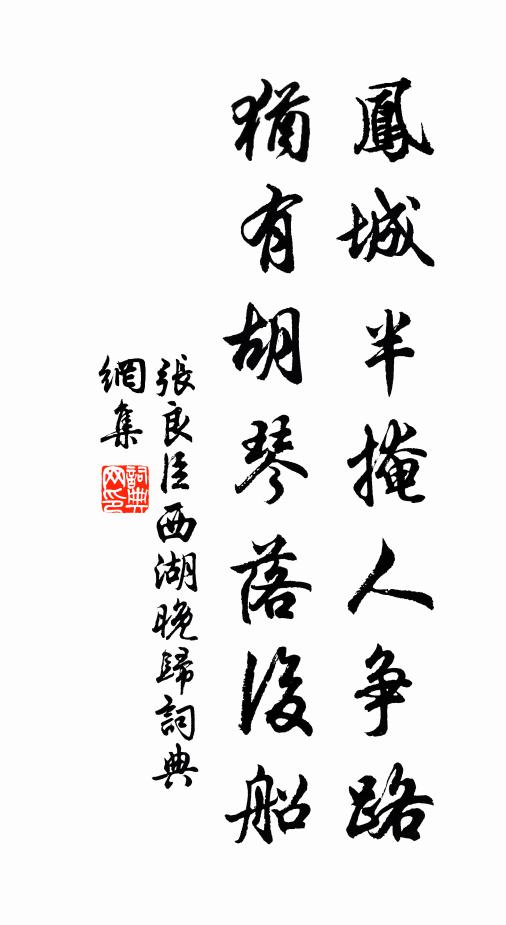 鳳城半掩人爭路
猶有胡琴落後船
張良臣西湖晚歸詞典
網集
詞典
网印